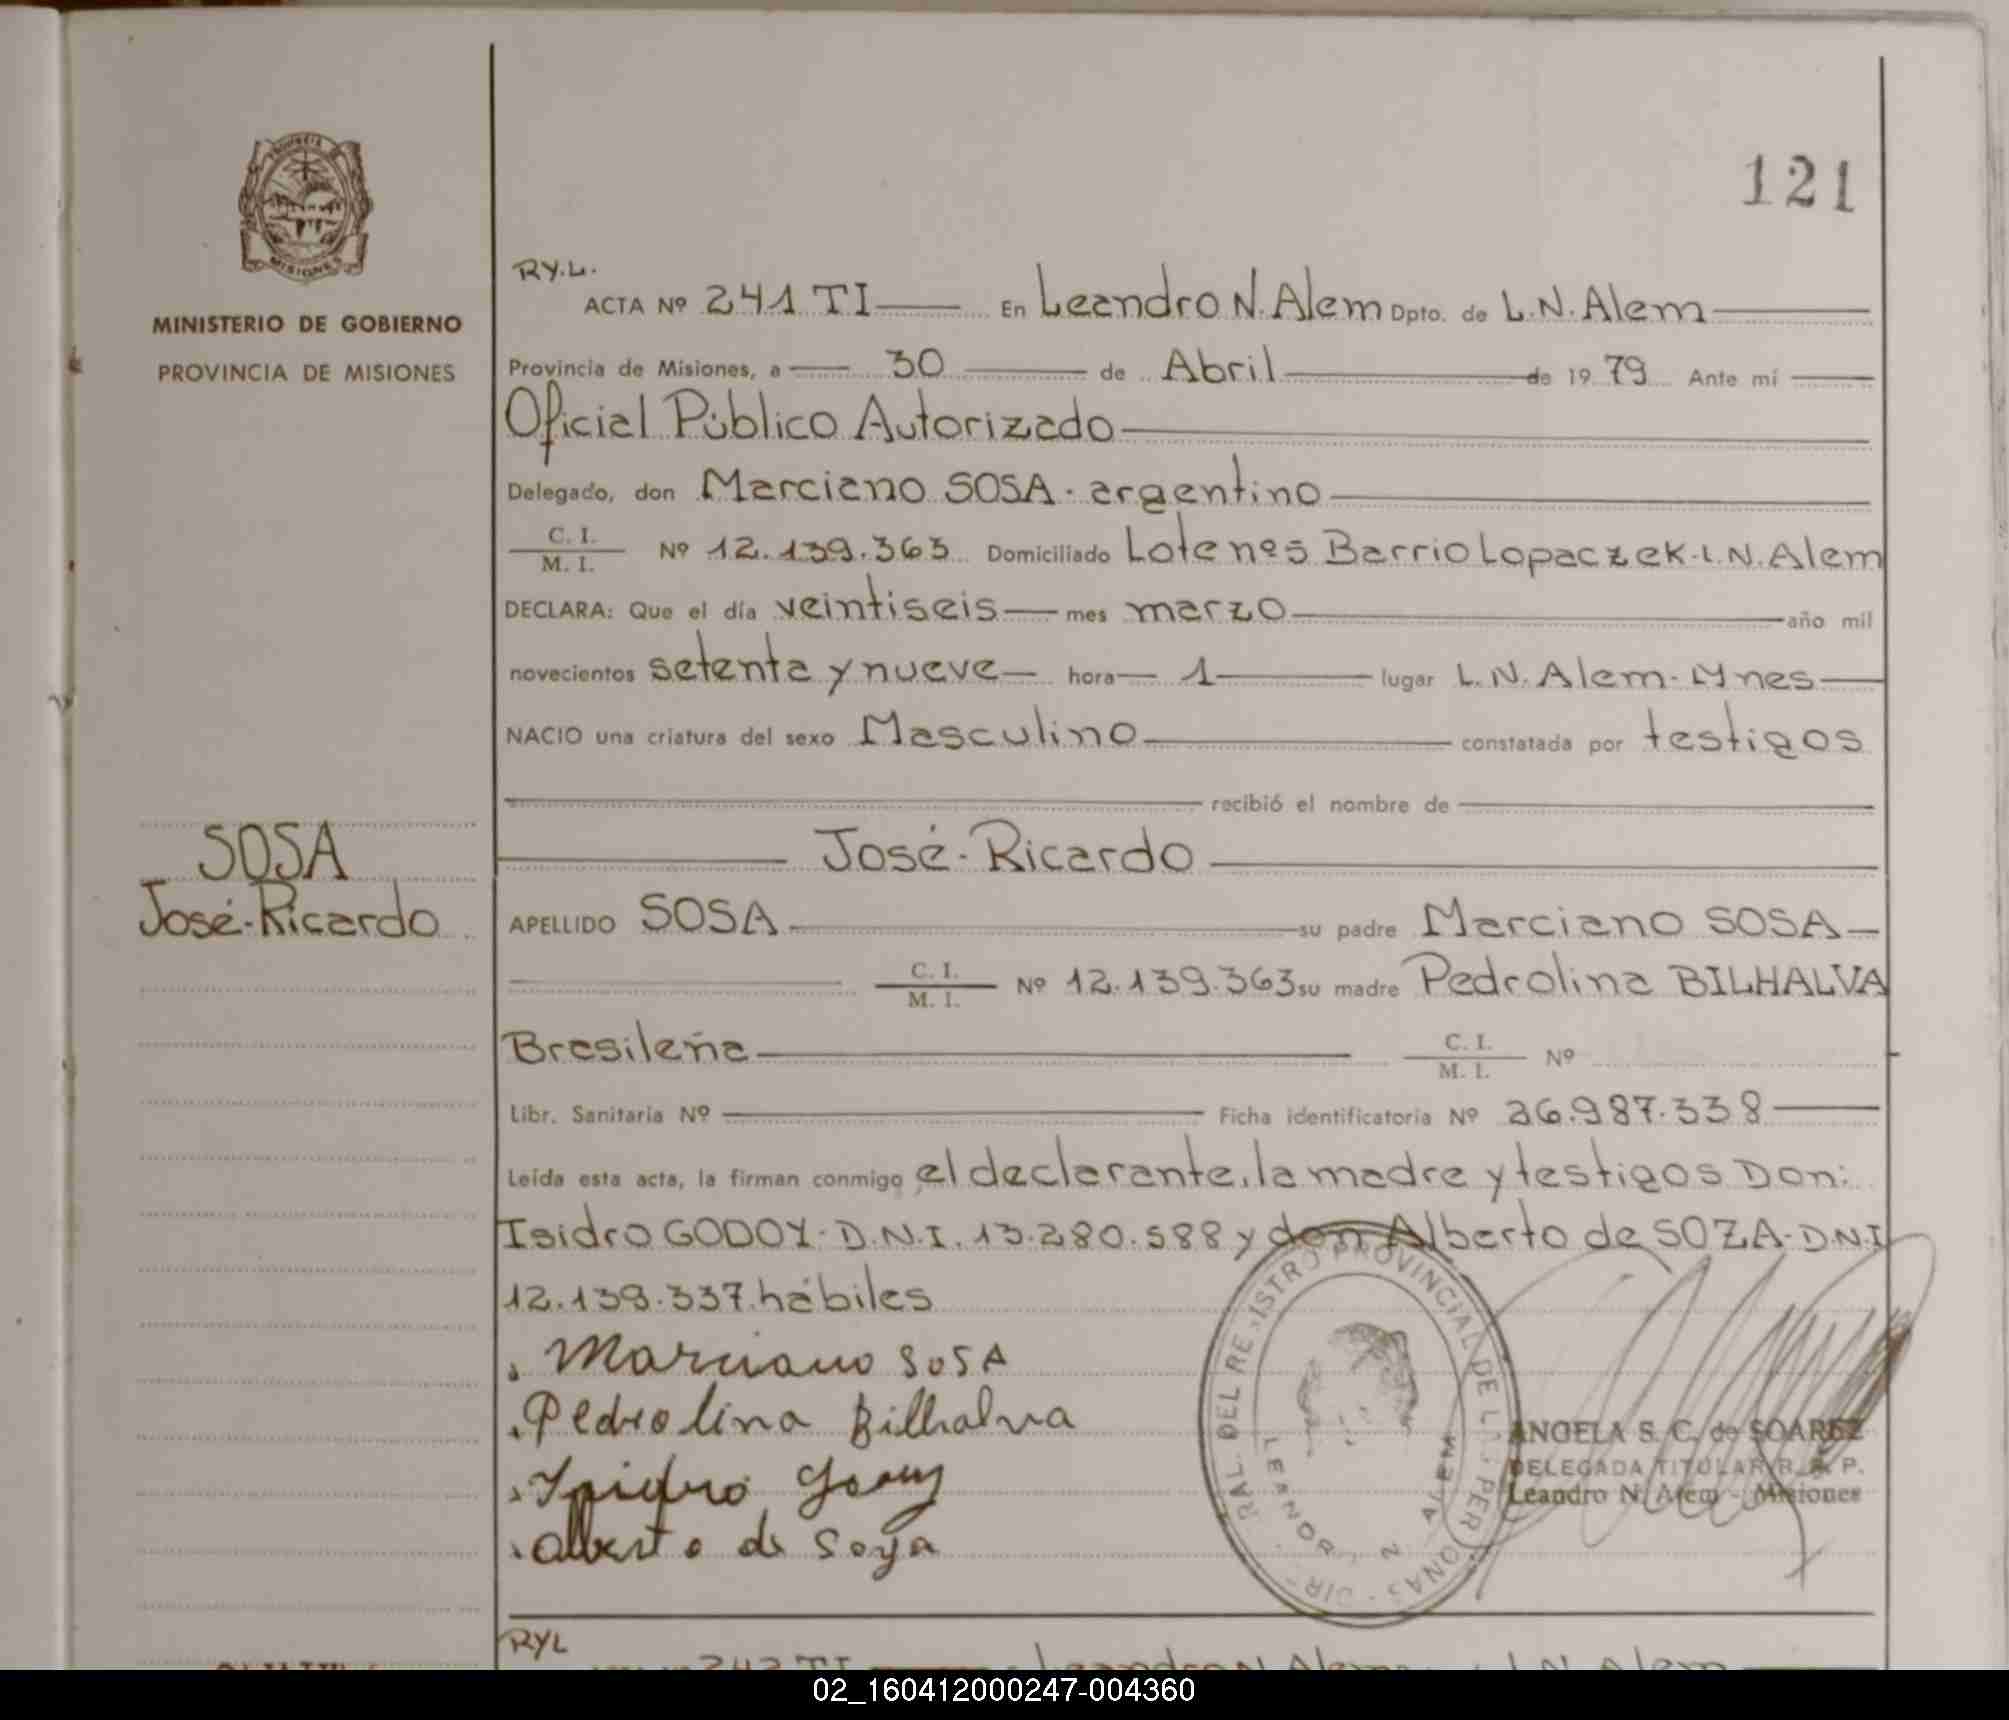 121
PROVINCIA DE
MISIONES
MINISTERIO DE GOBIERNO
PROVINCIA DE MISIONES
RY.L.
ACTA Nº 241 TI En Leandro N. Alem Dpto. de L.N. Alem
Provincia de Misiones, a 30 de Abril de 1979 Ante mi
Oficial Público Autorizado
Delegado, don Marciano SOSA - argentino
C. I.
M. I. Nº 12.139.363 Domiciliado Lote nº5 Barrio Lopaczek-L.N. Alem
DECLARA: Que el día veintiseis mes marzo año mil
novecientos setenta y nueve hora 1 lugar L.N. Alem - Mnes
NACIO una criatura del sexo Masculino constatada por testigos
recibió el nombre de
José-Ricardo
SOSA
José-Ricardo
APELLIDO SOSA su padre Marciano SOSA
C. I.
M. I. Nº 12.139.363 su madre Pedrolina BILHALVA
Brasileña C. I.
M. I. Nº
Libr. Sanitaria Nº Ficha identificatoria Nº 26.987.338
Leída esta acta, la firman conmigo el declarante, la madre y testigos Don:
Isidro GODOY - D.N.I. 13.280.588 y don Alberto de SOZA - D.N.I
12.139.337. hábiles
Marciano SOSA
Pedrolina Bilhalva
Isidro Godoy
alberto de Soza
RAL. DEL REGISTRO PROVINCIAL DE LAS PERSONAS - DIR
LEANDRO N ALEM
ANGELA S. C. de SOAREZ
DELEGADA TITULAR R. P. P.
Leandro N. Alem - Misiones
RYL
242 TI Leandro N. Alem L.N. Alem
02_160412000247-004360